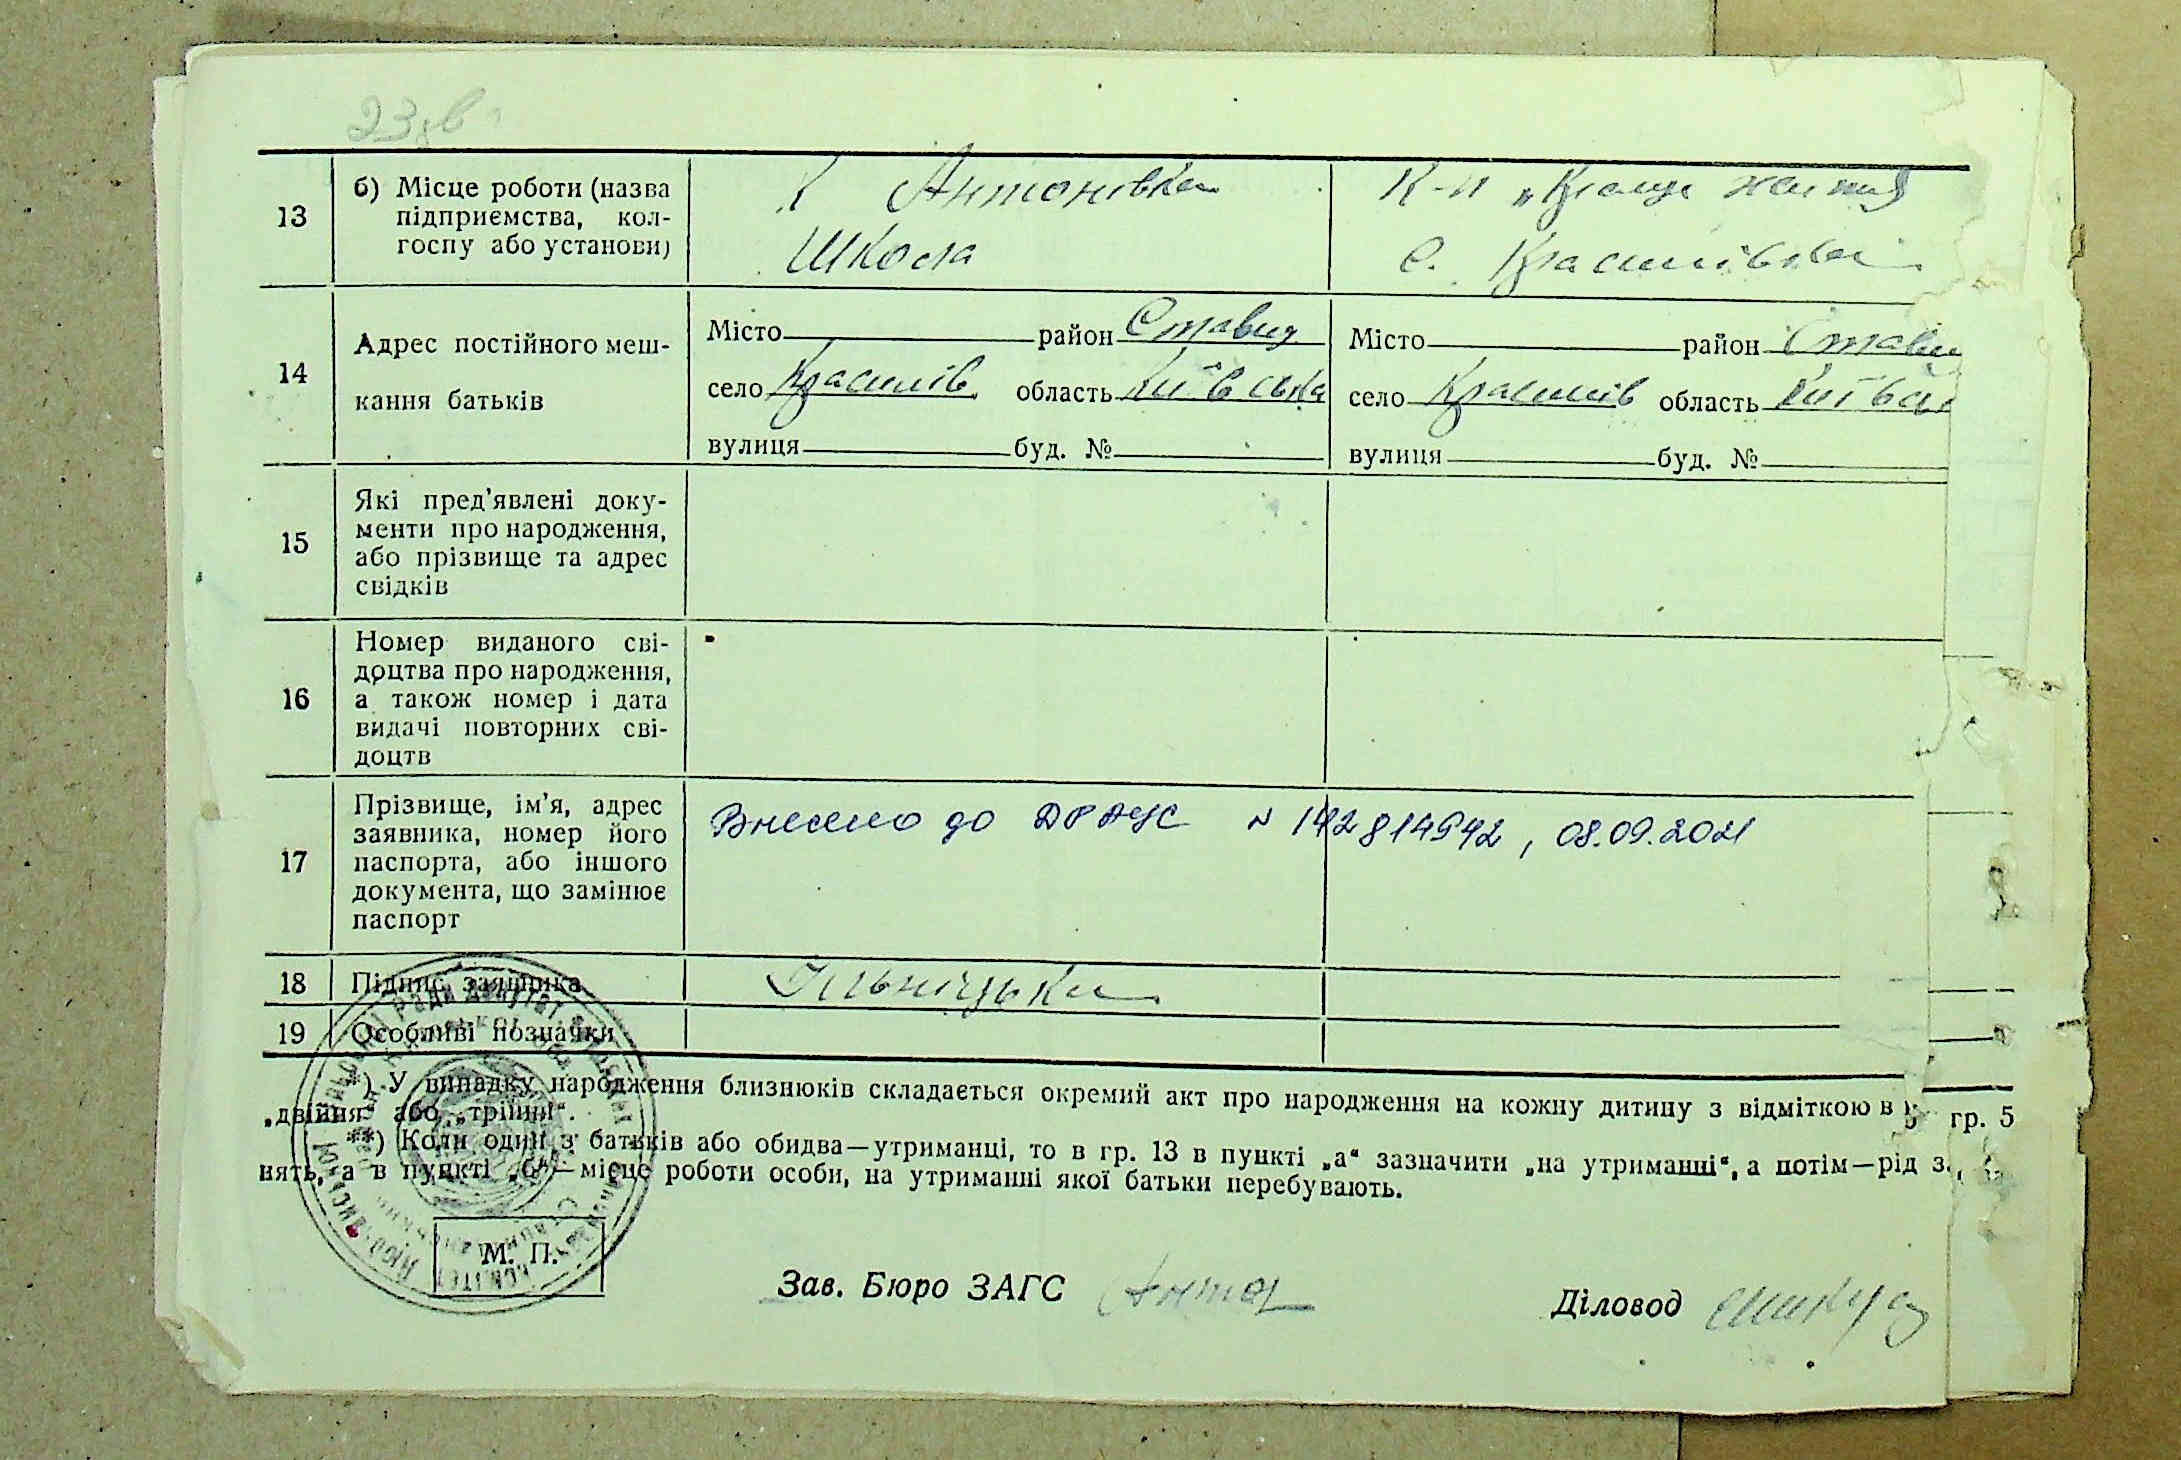 23 зв
13
б) Місце роботи (назва
підприємства, кол-
госпу або установи)
Антонівка
Школа
К-п „Краще життя
с. Красилівка
14
Адрес постійного меш-
кання батьків
Місто район Ставищ
село Красилів область Київська
вулиця буд. №
Місто район Стави
село Красилів область Київсь
вулиця буд. №
15
Які пред'явлені доку-
менти про народження,
або прізвище та адрес
свідків
16
Номер виданого сві-
доцтва про народження,
а також номер і дата
видачі повторних сві-
доцтв
17
Прізвище, ім'я, адрес
заявника, номер його
паспорта, або іншого
документа, що замінює
паспорт
Внесено до ДРАЦС № 142814942, 08.09.2021
18
Підпис заявника
Ільніцька
19
Особливі позначки
*) У випадку народження близнюків складається окремий акт про народження на кожну дитину з відміткою в гр. 5
„двійня" або „трійня".
**) Коли один з батьків або обидва—утриманці, то в гр. 13 в пункті „а" зазначити „на утриманні", а потім—рід за
нять, а в пункті „б"—місце роботи особи, на утриманні якої батьки перебувають.
М. П.
Зав. Бюро ЗАГС
Діловод